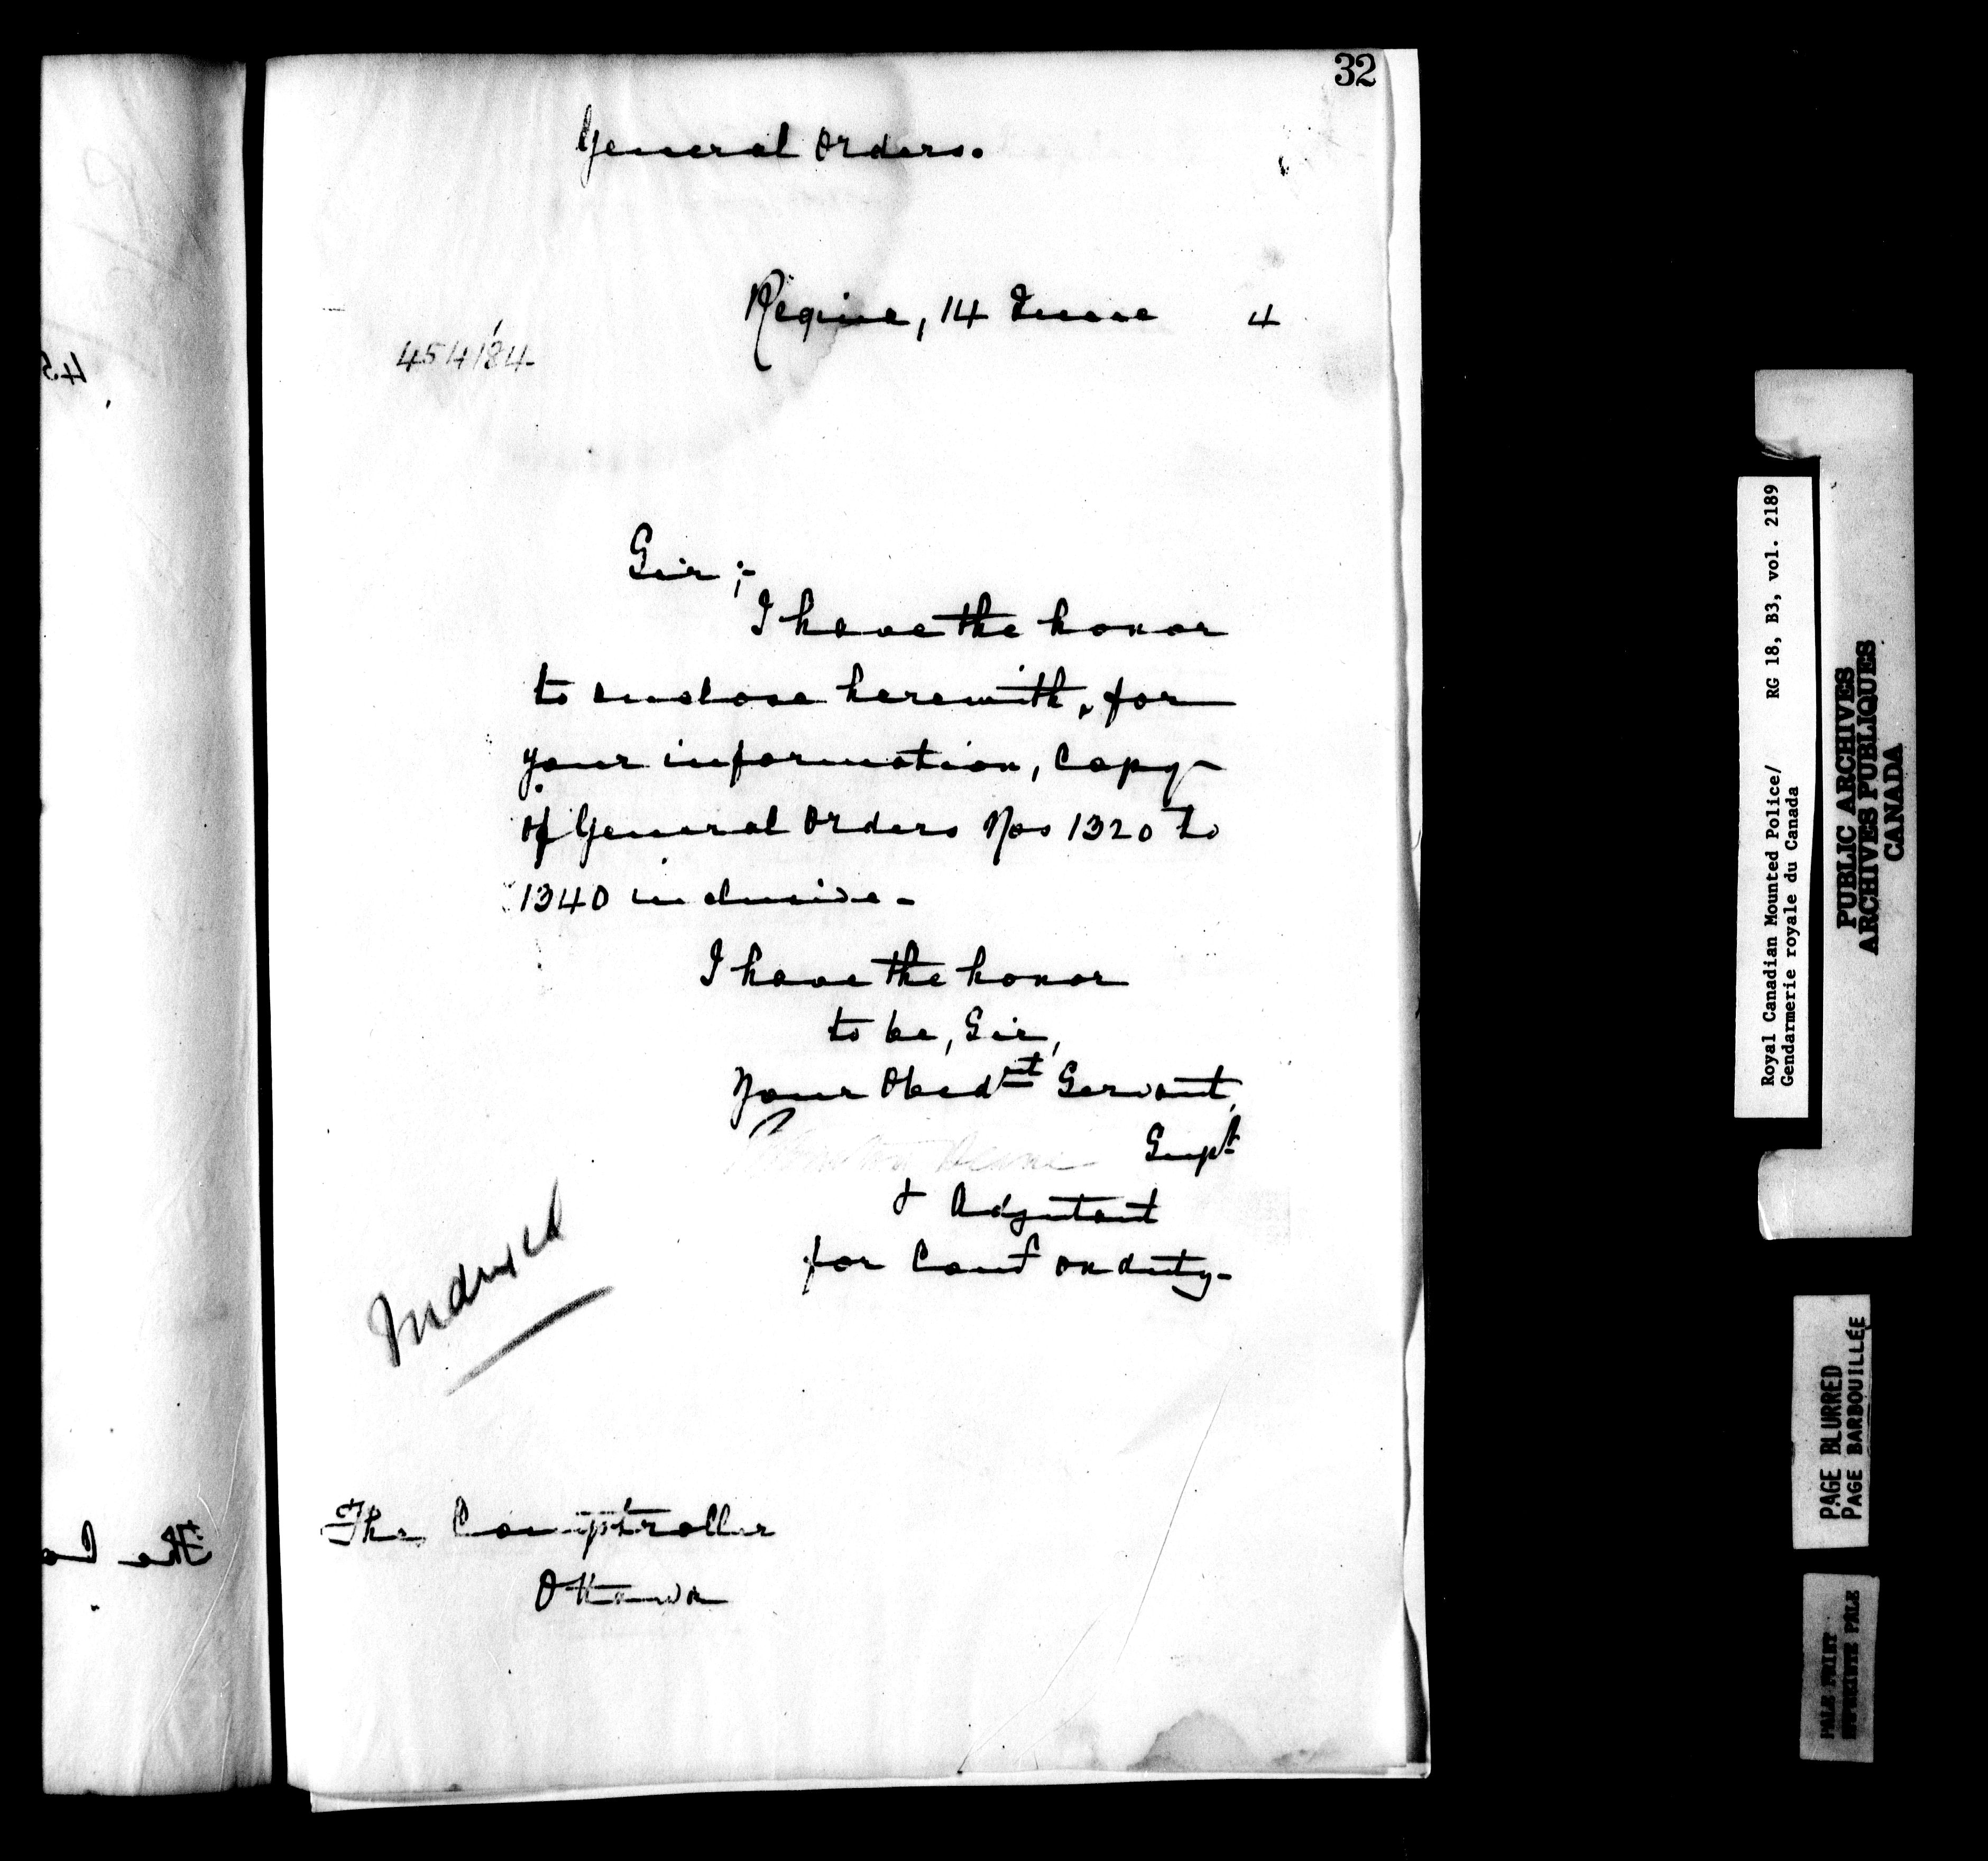 32
General Orders.
Regina, 14 June 4
454/84
Sir ;-
I have the honor
to enclose herewith, for
your information, Copy
of General Orders Nos 1320 to
1340 inclusive -
I have the honor
to be, Sir,
Your Obednt Servant,
Deane Supt
& Adjutant
for Comt on duty -
Indexed
The Comptroller
Ottawa
45
The Co
Royal Canadian Mounted Police/ RG 18, B3, vol. 2189
Gendarmerie royale du Canada
PUBLIC ARCHIVES
ARCHIVES PUBLIQUES
CANADA
PAGE BLURRED
PAGE BARBOUILLÉE
PALE PRINT